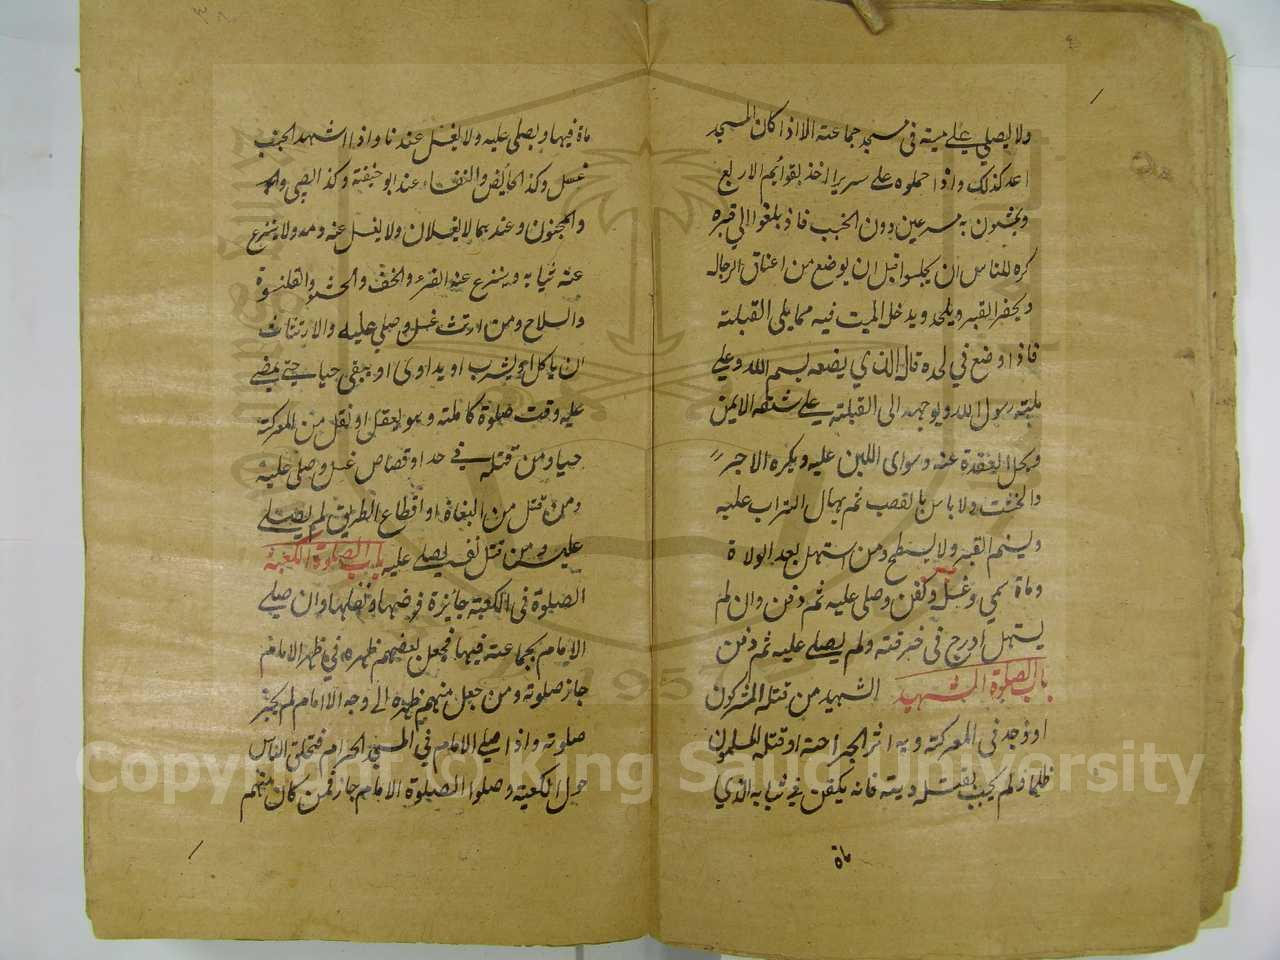 ولا يصلي على ميته في مسجد جماعته الا اذا كان المسجد
اعد كذلك واذا حملوه على سرير اخذ بقوائم الاربع
ويمشون به مسرعين دون الخبب فاذ بلغوا الي قبره
كره للناس ان يجلسوا قبل ان يوضع من اعناق الرجاله
ويحفر القبر ويلحد ويدخل الميت فيه مما يلي القبلته
فاذا وضع في لحده قاله الذي يضعه بسم الله وعلي
ملته رسول الله ويوجهه الى القبلته على شقه الايمن
ويحل العقدة عنه وسواى اللبن عليه ويكره الاجر
والخشت ولا باس بالقصب ثم يهال التراب عليه
ويسنم القبر ولا يسطح ومن استهل بعد الولاة
وماة سمي وغسل وكفن وصلى عليه ثم دفن وان لم
يستهل ادرج في خرقته ولم يصلي عليه ثم دفن
باب الصلوة الشهيد الشهيد من قتله المشركون
او وجد في المعركته وبه اثر الجراحته او قتله المسلمون
ظلما ولم يجب بقتله ديته فانه يكفن في ثيابه الذي
ماة
ماة فيها ويصلى عليه ولا يغسل عندنا واذا اشهد الجنب
غسل وكذ الحايض والنفساء عند ابو حنيفة وكذ الصبي
والمجنون وعندهما لا يغسلان ولا يغسل عنه ومه ولا ينزع
عنه ثيابه وينزع عنه الفرء والخف والحشو والقلنسوة
والسلاح ومن ارتث غسل وصلي عليه والارتثاث
ان ياكل او يشرب او يداوى او يبقى حيا حتى يمضي
عليه وقت صلوة كاملته وهو يعقل او نقل من المعركته
حيا ومن قتله في حد او قصاص غسل وصلى عليه
ومن قتل من البغاة او اقطاع الطريق لم يصلي
عليه ومن قتل نفسه يصلي عليه باب الصلوة الكعبة
الصلوة في الكعبته جايزة فرضها ونفلها وان صلي
الامام بجماعته فيها فجعل بعضهم ظهره في ظهر الامام
جاز صلوته ومن جعل منهم ظهره الى وجه الامام لم يجز
صلوته واذا صلي الامام في المسجد الحرام فتحلق الناس
حول الكعبته وصلوا الصلوة الامام جاز فمن كان منهم
Copyright (c) King Saud University
1957